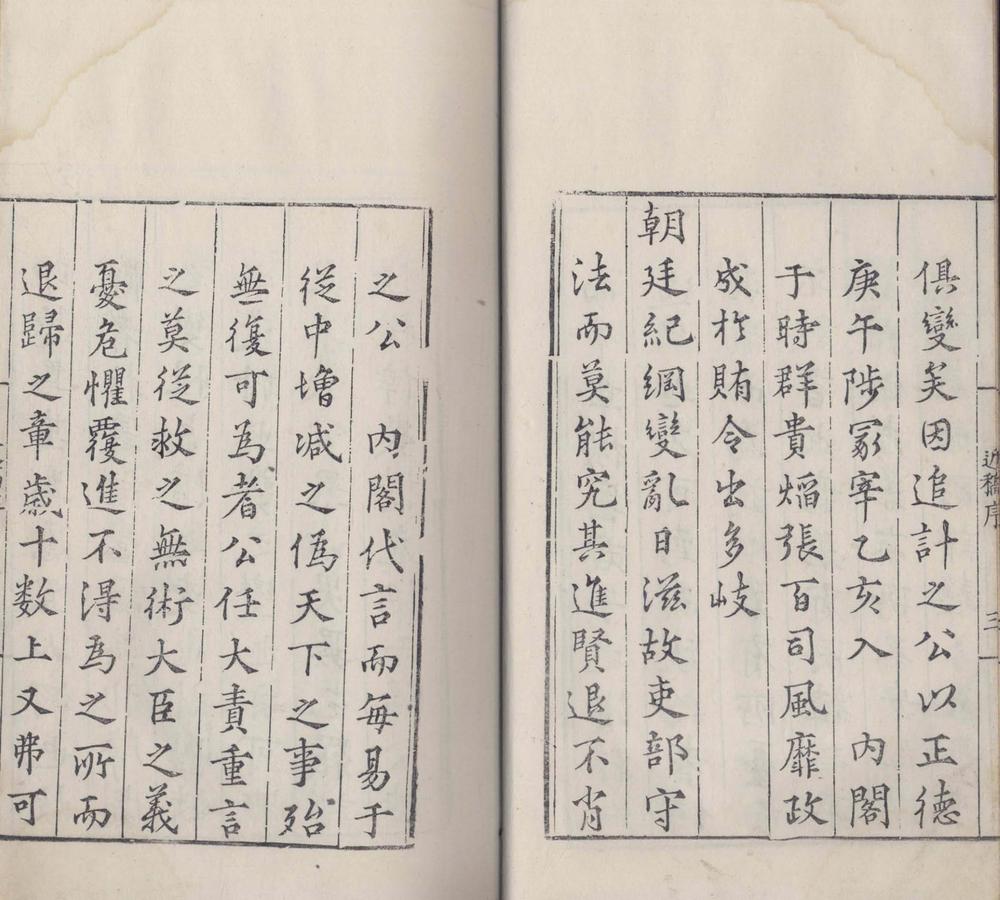 俱變矣因追計之公以正德
庚午陟冢宰乙亥入　內閣
于時群貴熖張百司風靡政
成於賄令出多岐
朝廷紀綱變亂日滋故吏部守
法而莫能究其進賢退不肖
之公　內閣代言而每易于
從中增減之偽天下之事殆
無復可為者公任大責重言
之莫從救之無術大臣之義
憂危懼覆進不得為之所而
退歸之章歲十数上又弗可
近稿序
三